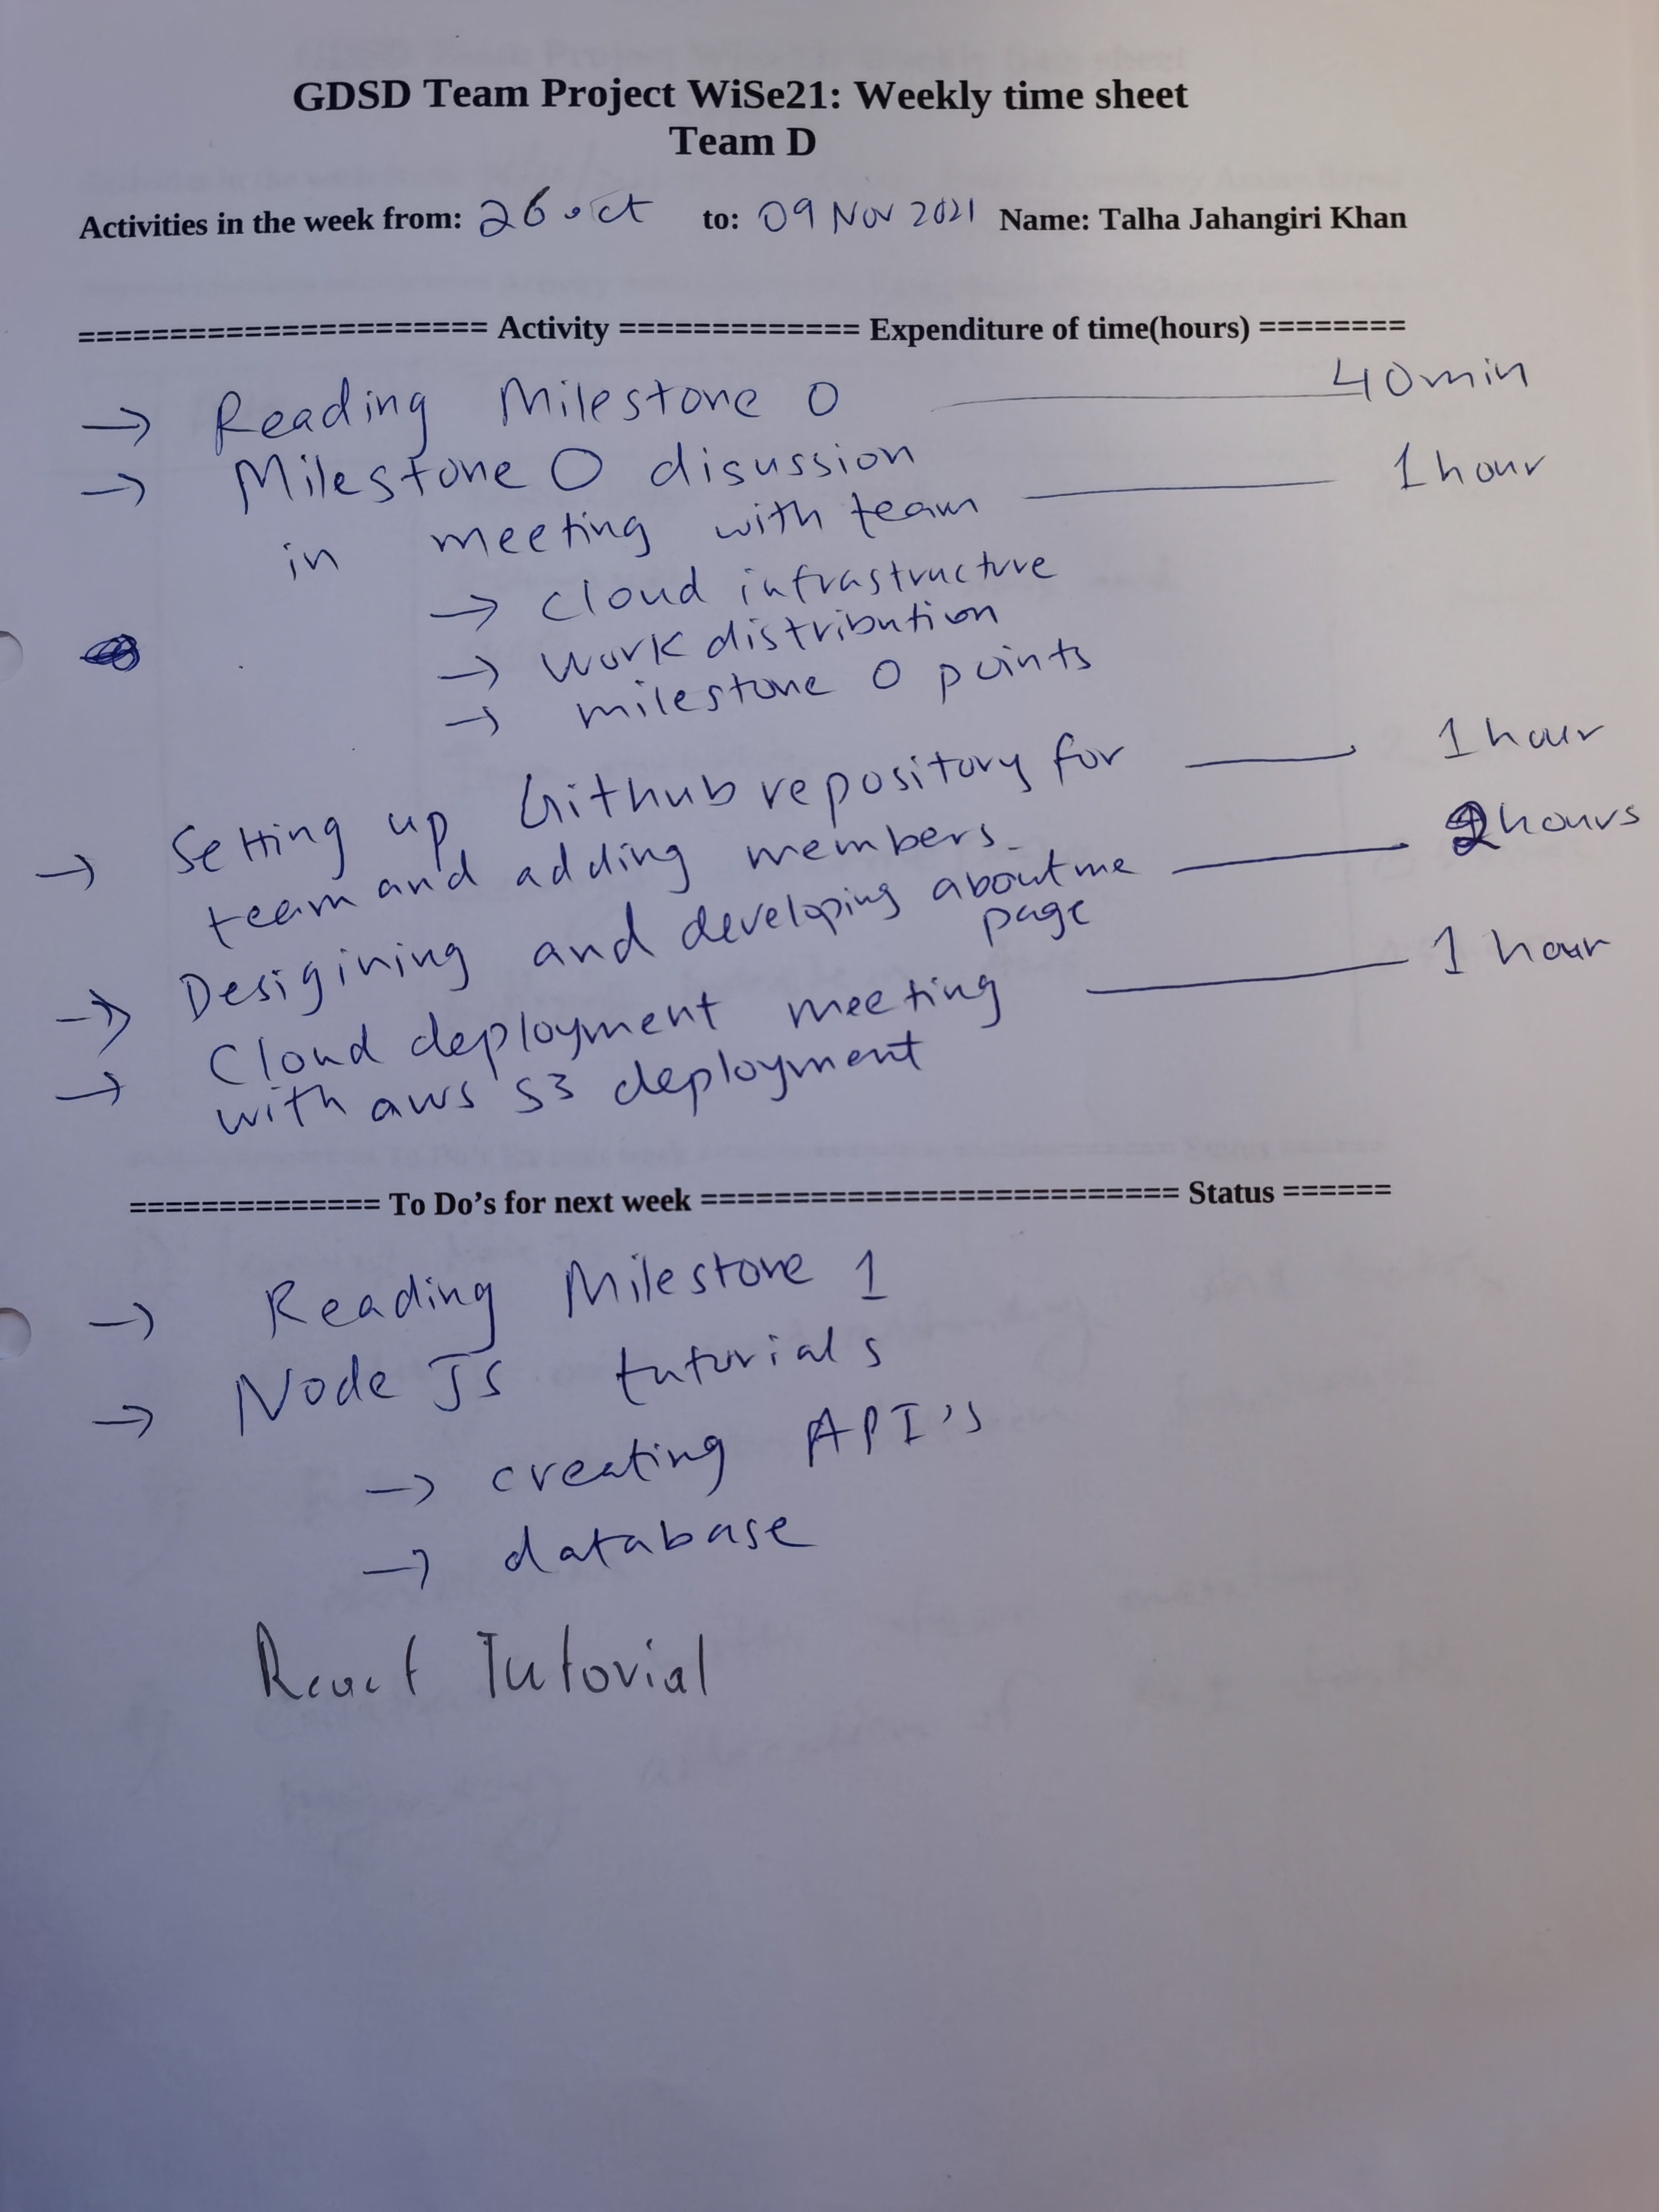 GDSD Team Project WiSe21: Weekly time sheet
Team D
Activities in the week from: 26 oct to: 09 Nov 2021 Name: Talha Jahangiri Khan
====================== Activity ============= Expenditure of time(hours) ========
→ Reading Milestone 0 40min
→ Milestone 0 disussion
in meeting with team 1 hour
→ cloud infrastructure
→ work distribution
→ milestone 0 points
→ Setting up Github repository for 1 hour
team and adding members.
→ Desigining and developing about me hours
page
→ Cloud deployment meeting 1 hour
with aws S3 deployment
============= To Do’s for next week ========================= Status ======
→ Reading Milestone 1
→ Node JS tutorials
→ creating API's
→ database
React Tutorial